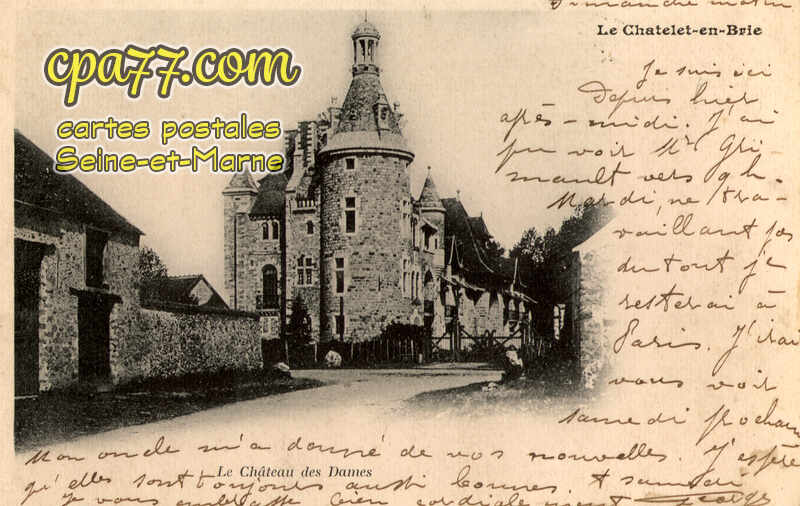 Dimanche matin
Le Chatelet-en-Brie
cpa77.com
cartes postales
Seine-et-Marne
Je suis ici
Depuis hier
après-midi. J'ai
pu voir Mr Gri-
mault vers 9h.
Mardi, ne tra-
vaillant pas
du tout je
resterai à
Paris. J'irai
vous voir
samedi prochain
Mon oncle m'a donné de vos nouvelles. J'espère
Le Château des Dames
qu'elles sont toujours aussi bonnes. A samedi
Je vous embrasse bien cordialement Georges